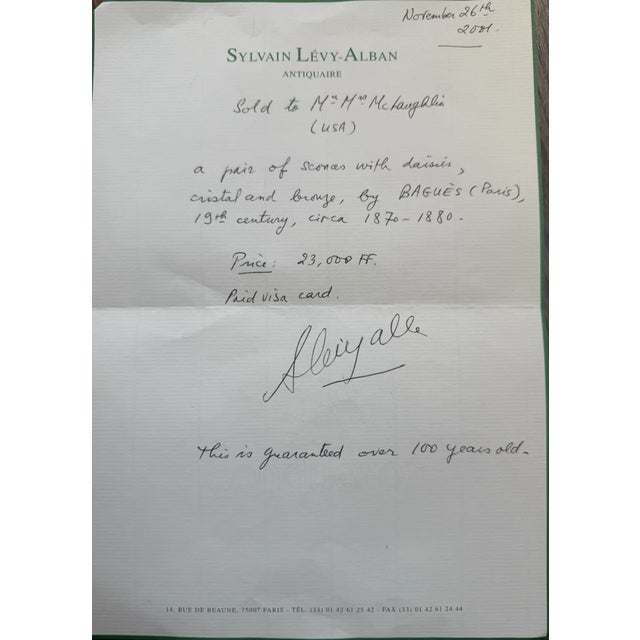 November 26th
2001.
SYLVAIN LÉVY-ALBAN
ANTIQUAIRE
Sold to Mr Mrs McLaughlin
(USA)
a pair of sconces with daisies,
cristal and bronze, by BAGUÈS (Paris),
19th century, circa 1870-1880.
Price: 23,000 FF.
Paid visa card.
This is guaranteed over 100 years old-
14, RUE DE BEAUNE, 75007 PARIS - TÉL. (33) 01 42 61 25 42 - FAX (33) 01 42 61 24 44